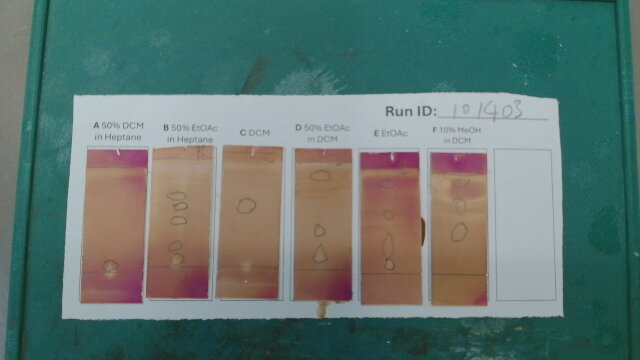 Run ID: 101403
A 50% DCM
in Heptane
B 50% EtOAc
in Heptane
C DCM
D 50% EtOAc
in DCM
E EtOAc
F 10% MeOH
in DCM